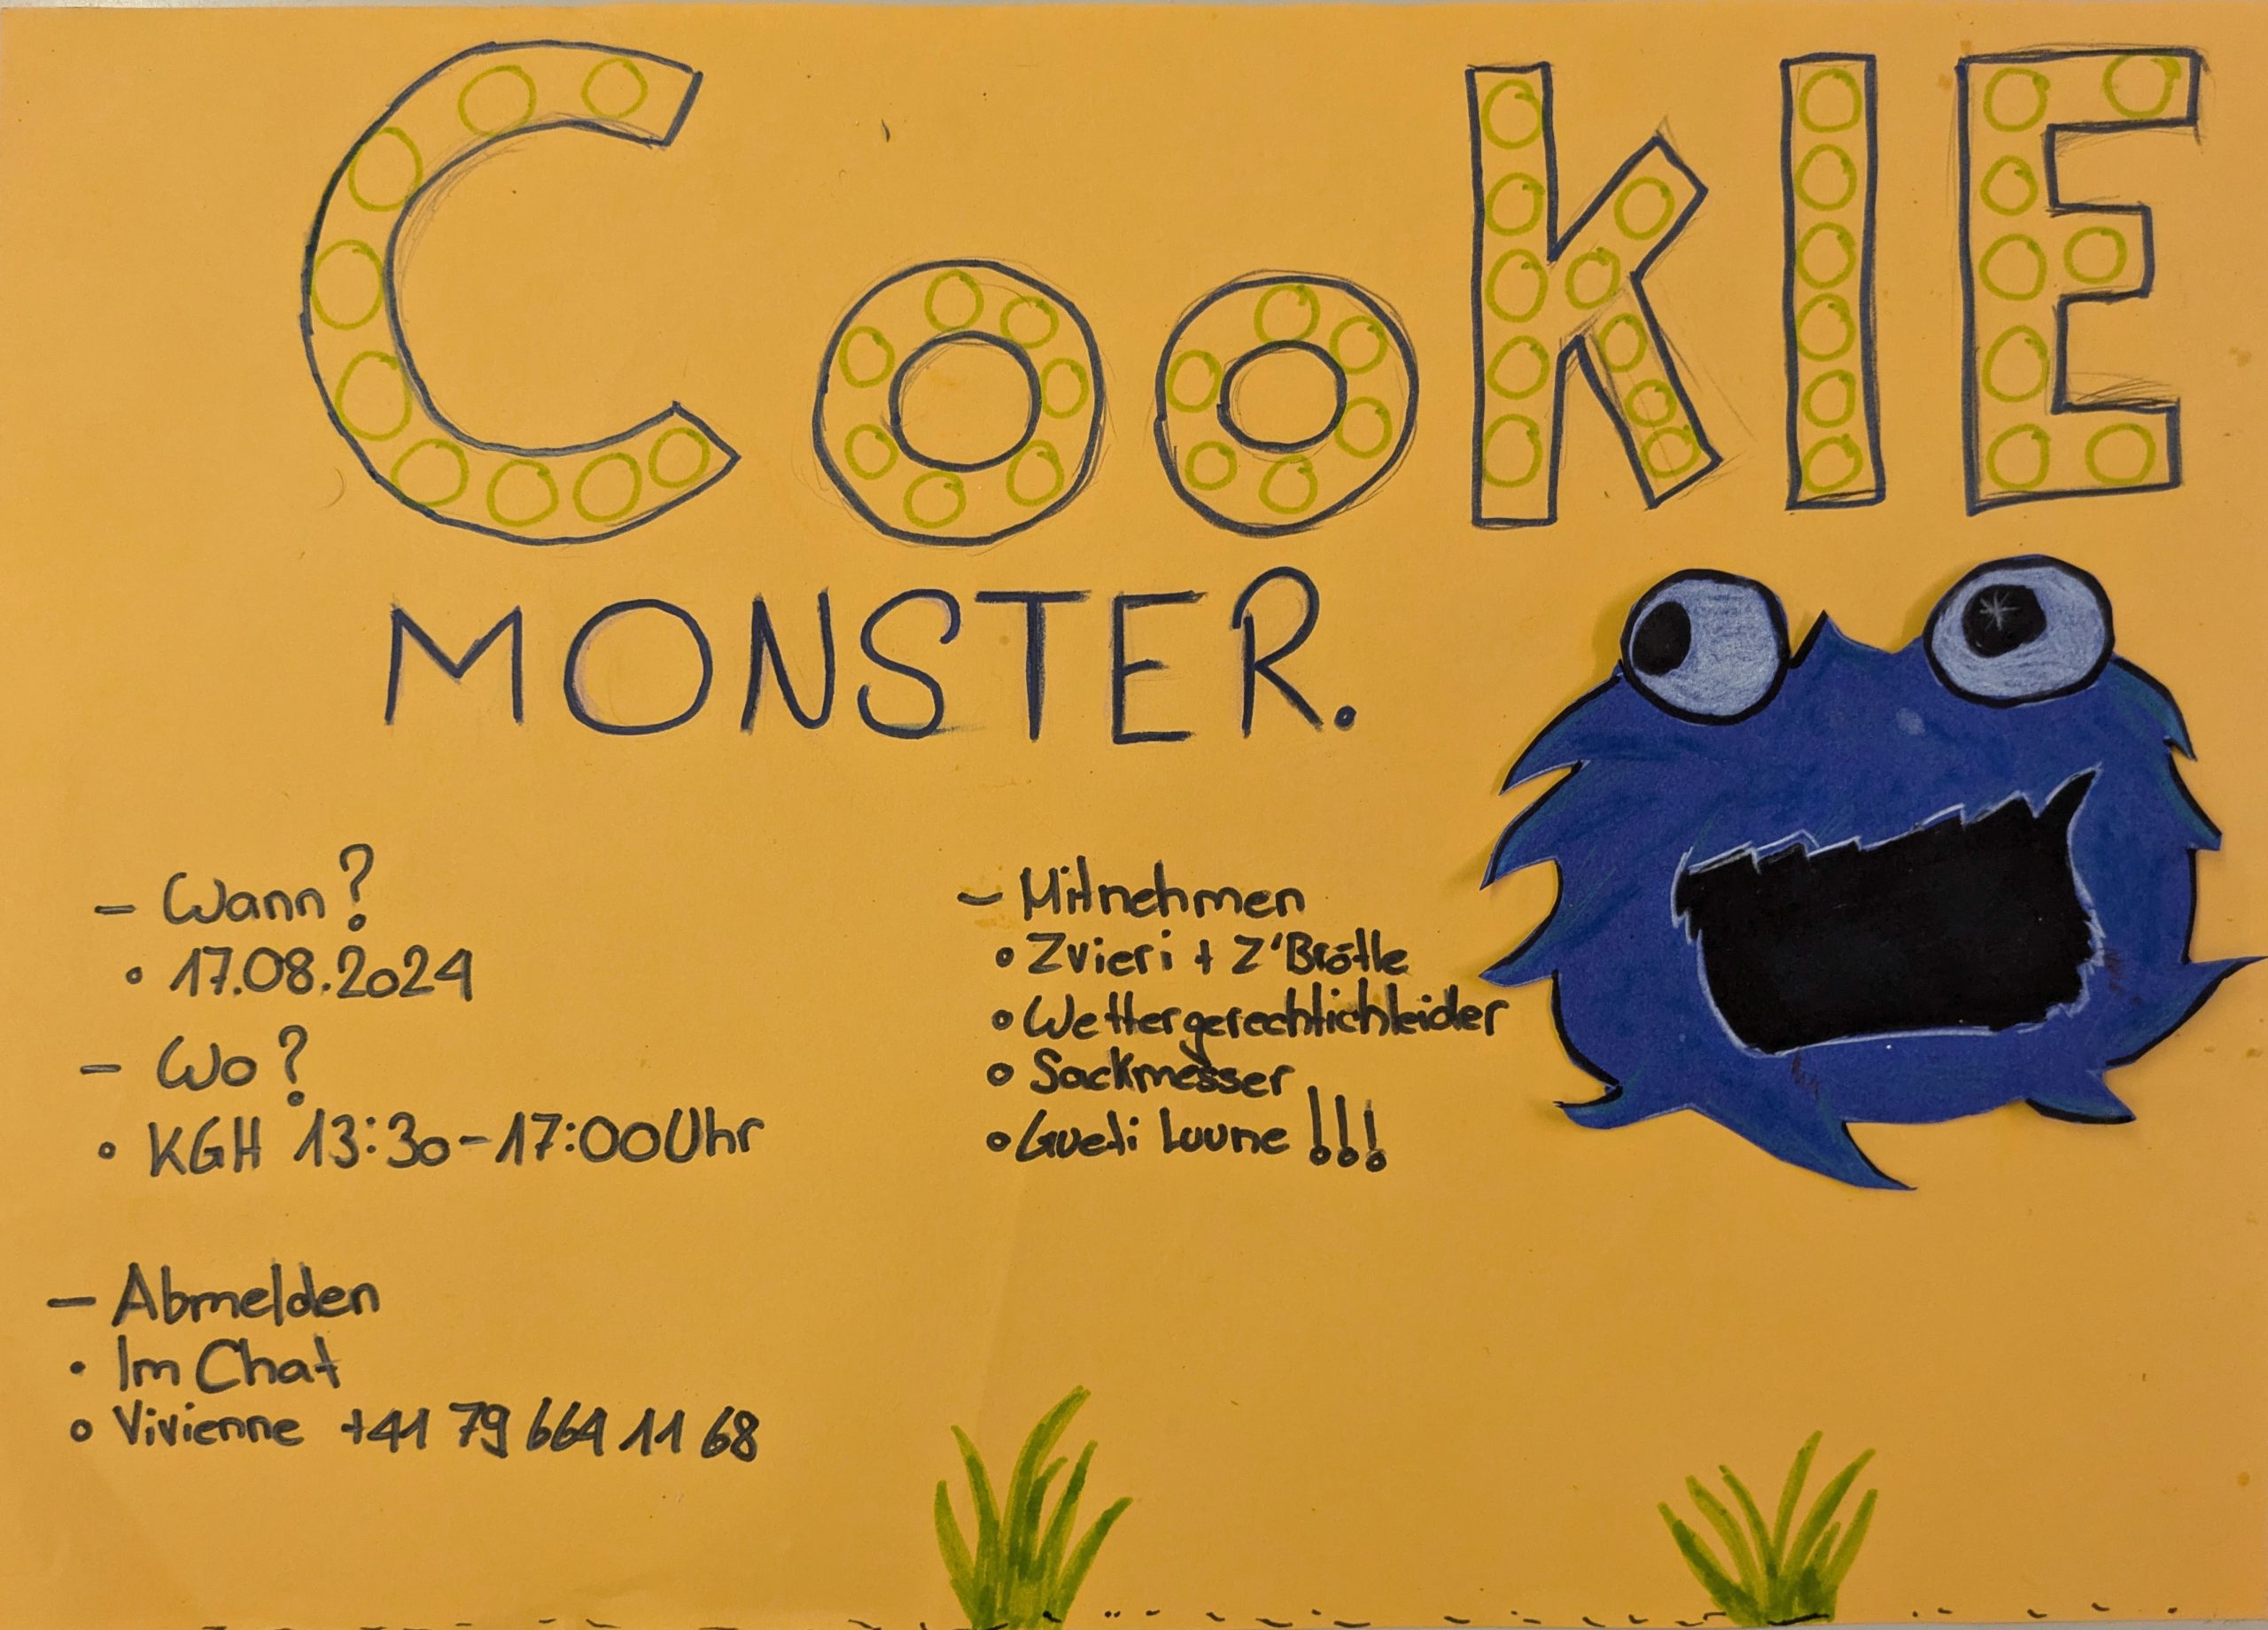 COOKIE
MONSTER.
– Wann?
• 17.08.2024
– Wo?
• KGH 13:30-17:00Uhr
– Abmelden
• Im Chat
• Vivienne +41 79 664 11 68
– Mitnehmen
• Zvieri + Z'Brötle
• Wettergerechtichleider
• Sackmesser
• Gueti Luune !!!